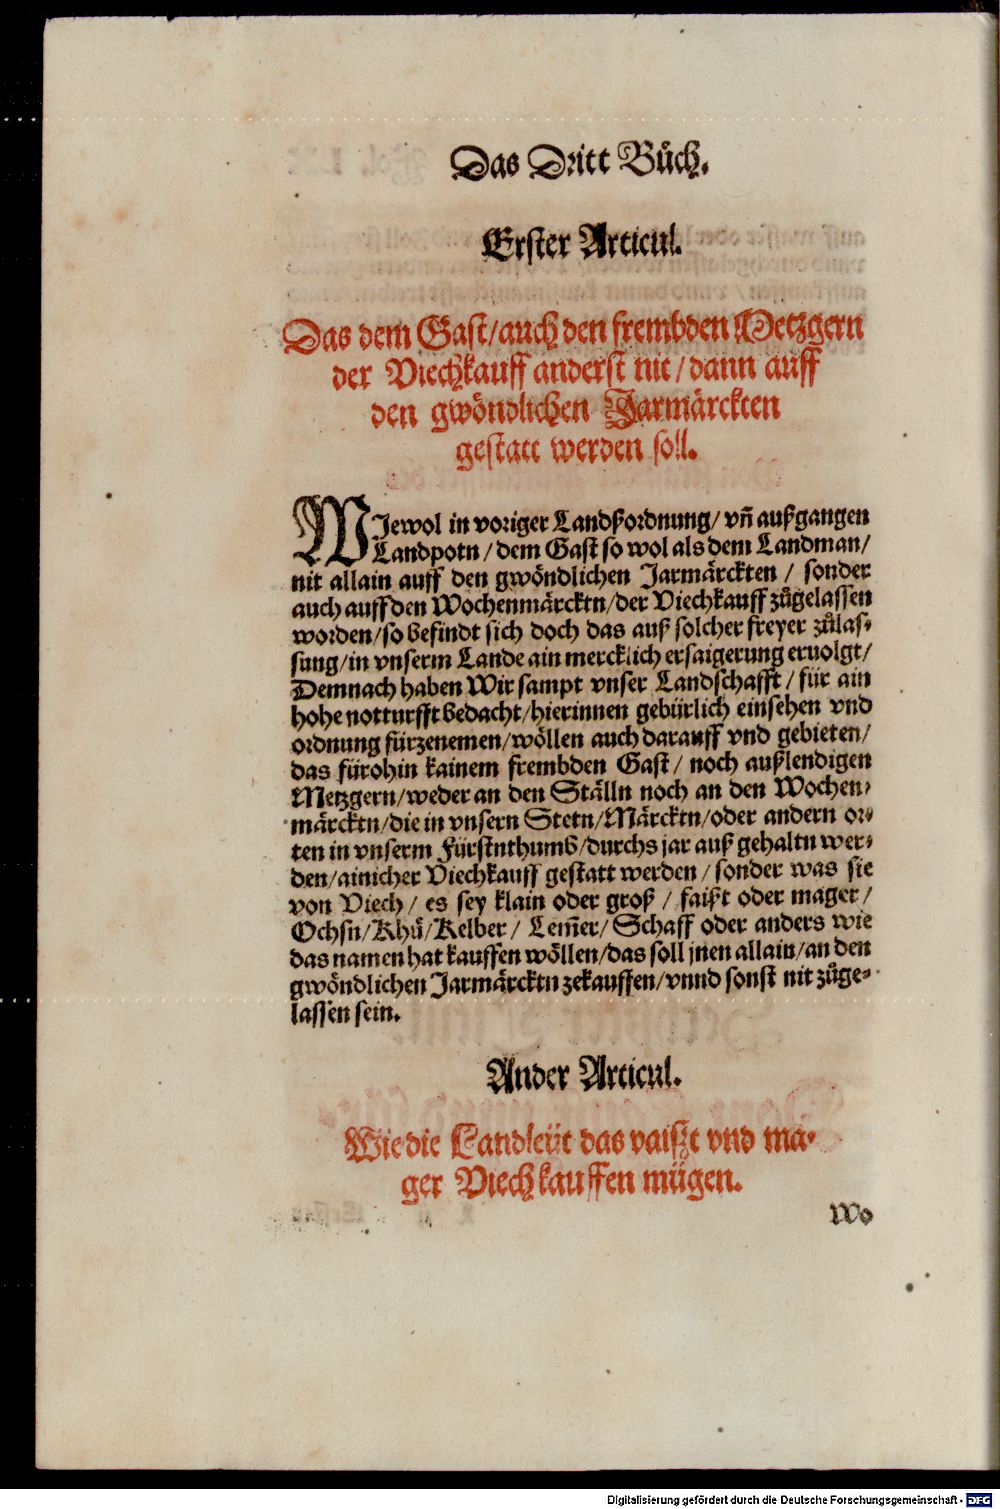 Das Dritt Bůch.
Erster Articul.
Das dem Gast/auch den frembden Metzgern
der Viechkauff anderst nit/dann auff
den gwöndlichen Jarmärckten
gestatt werden soll.
WJewol in voriger Landßordnung/vñ außgangen
Landpotn/dem Gast so wol als dem Landman/
nit allain auff den gwöndlichen Jarmärckten/ sonder
auch auff den Wochenmärcktn/der Viechkauff zůgelassen
worden/so befindt sich doch das auß solcher freyer zůlas-
sung/in vnserm Lande ain mercklich ersaigerung eruolgt/
Demnach haben Wir sampt vnser Landschafft/für ain
hohe notturfft bedacht/hierinnen gebürlich einsehen vnd
ordnung fürzenemen/wöllen auch darauff vnd gebieten/
das fürohin kainem frembden Gast/ noch außlendigen
Metzgern/weder an den Ställn noch an den Wochen-
märcktn/die in vnsern Stetn/Märcktn/oder andern or-
ten in vnserm Fürstnthumb/durchs jar auß gehaltn wer-
den/ainicher Viechkauff gestatt werden/sonder was sie
von Viech/ es sey klain oder groß/ faißt oder mager/
Ochsn/Khů/Kelber/ Lem̃er/Schaff oder anders wie
das namen hat kauffen wöllen/das soll jnen allain/an den
gwöndlichen Jarmärcktn zekauffen/vnnd sonst nit zůge-
lassen sein.
Ander Articul.
Wie die Landleüt das vaißt vnd ma-
ger Viech kauffen mügen.
Wo
Digitalisierung gefördert durch die Deutsche Forschungsgemeinschaft - DFG